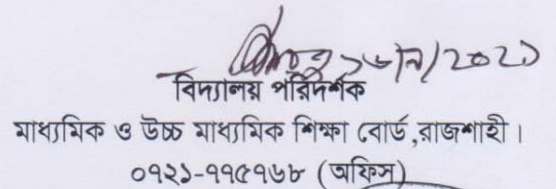 ১৬/৭/২০২১
বিদ্যালয় পরিদর্শক
মাধ্যমিক ও উচ্চ মাধ্যমিক শিক্ষা বোর্ড,রাজশাহী।
০৭২১-৭৭৫৭৬৮ (অফিস)